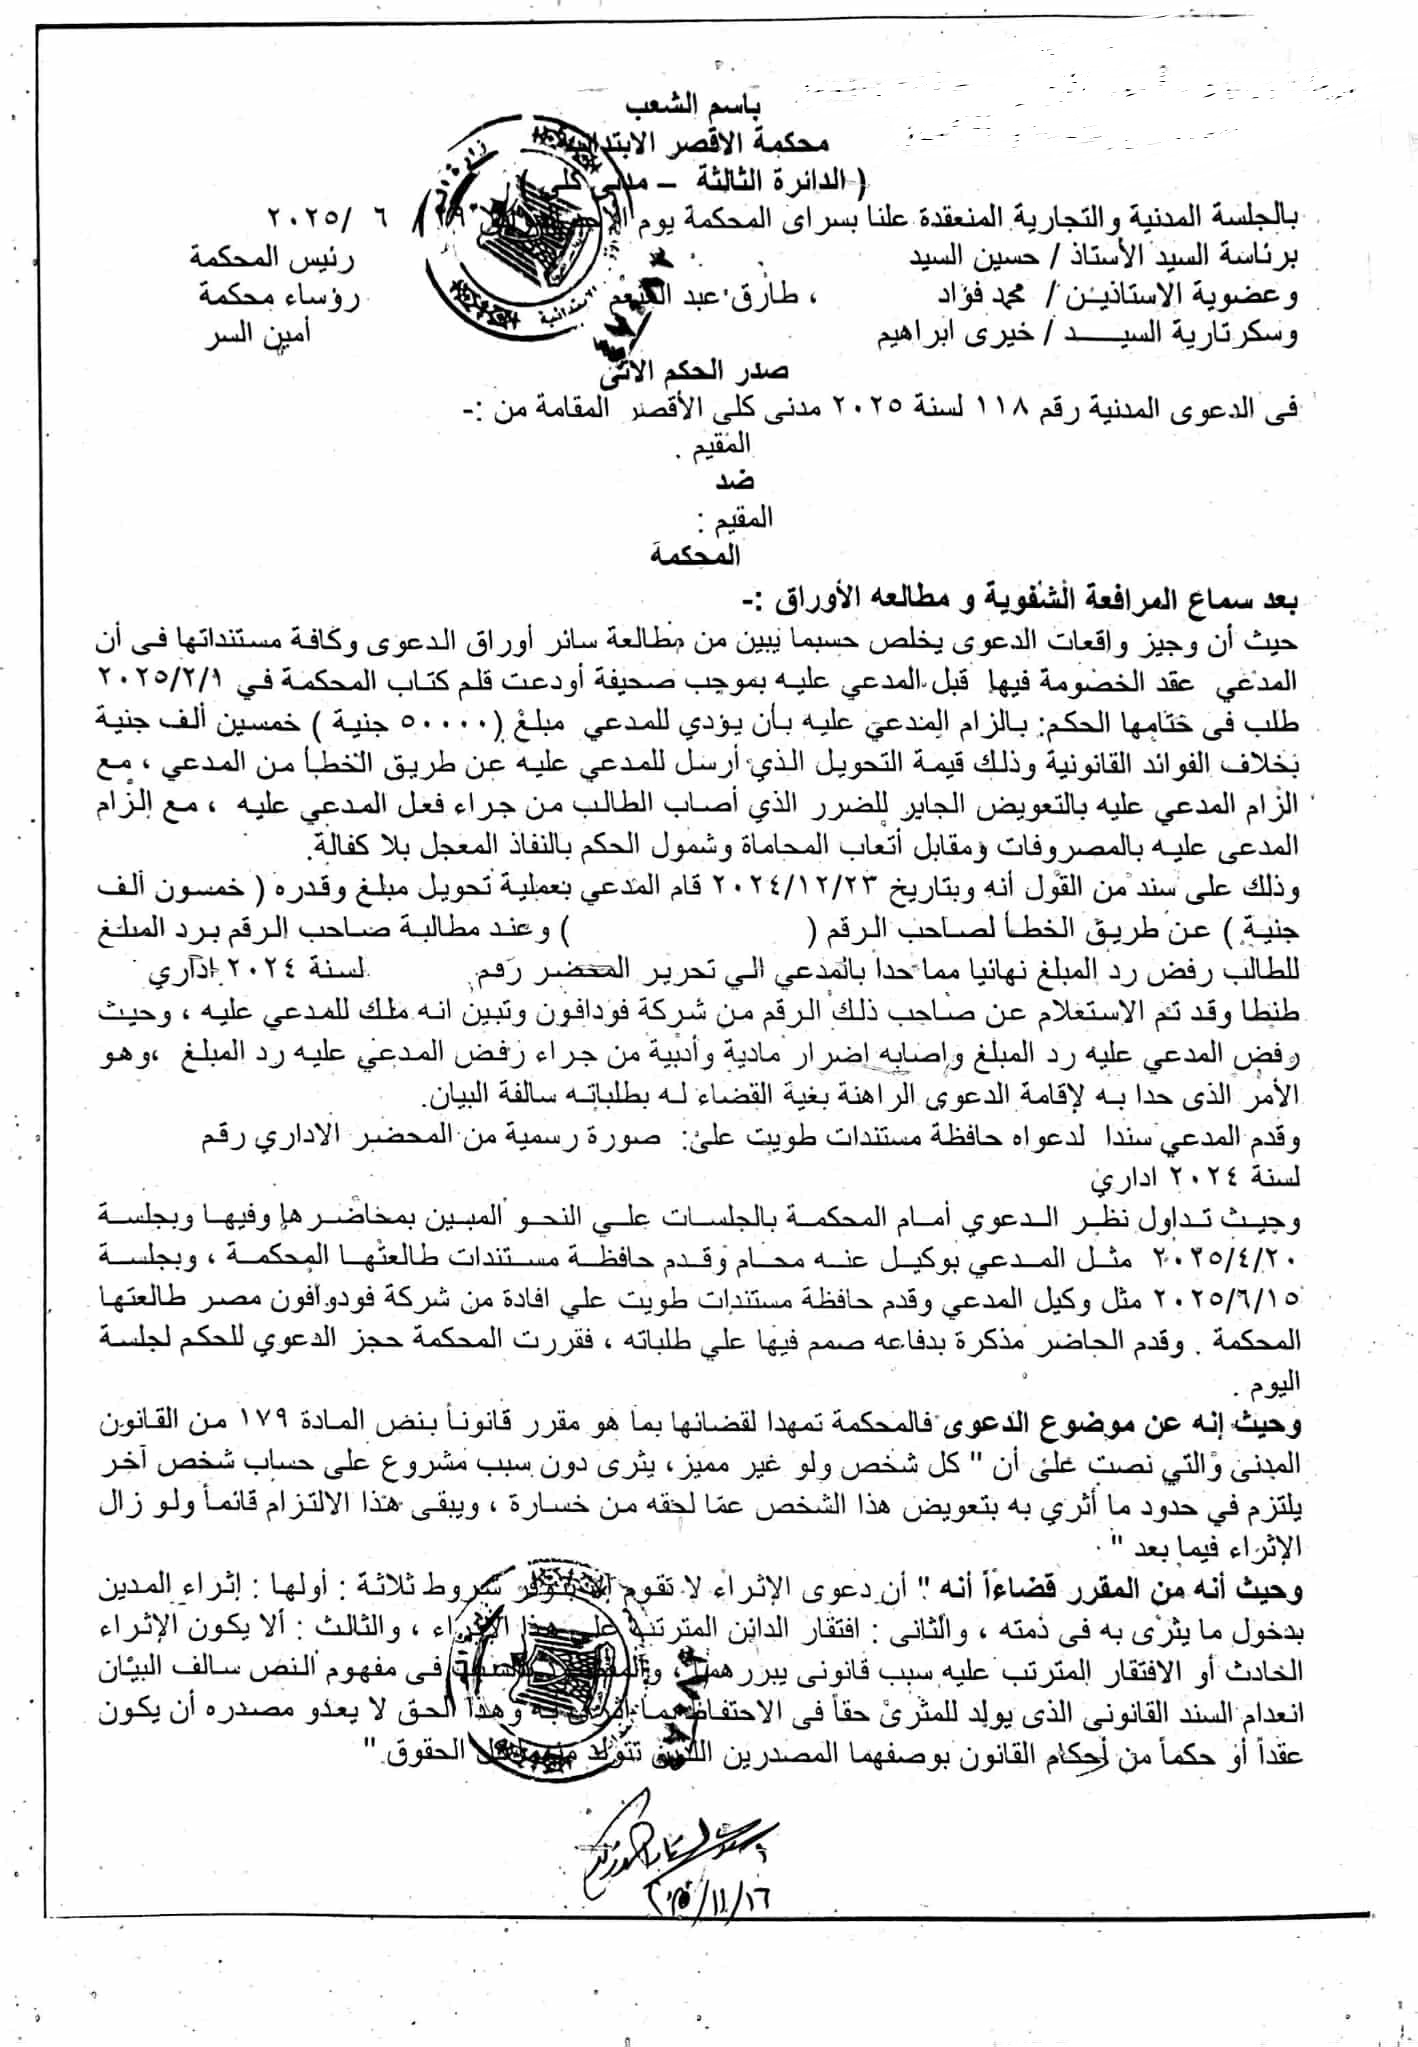 باسم الشعب
محكمة الاقصر الابتدائية
( الدائرة الثالثة – مدنى كلى )
بالجلسة المدنية والتجارية المنعقدة علنا بسراى المحكمة يوم ٢٩ / ٦ /٢٠٢٥
برئاسة السيد الأستاذ / حسين السيد رئيس المحكمة
وعضوية الاستاذين / محمد فؤاد ، طارق عبد المنعم رؤساء محكمة
وسكرتارية السيـــد / خيرى ابراهيم أمين السر
صدر الحكم الاتى
فى الدعوى المدنية رقم ١١٨ لسنة ٢٠٢٥ مدنى كلى الأقصر المقامة من :-
المقيم .
ضد
المقيم :
المحكمة
بعد سماع المرافعة الشفوية و مطالعه الأوراق :-
حيث أن وجيز واقعات الدعوى يخلص حسبما يبين من مطالعة سائر أوراق الدعوى وكافة مستنداتها فى أن
المدعي عقد الخصومة فيها قبل المدعي عليه بموجب صحيفة أودعت قلم كتاب المحكمة في ٢٠٢٥/٢/١
طلب فى ختامها الحكم: بالزام المدعي عليه بأن يؤدي للمدعي مبلغ (٥٠٠٠٠ جنية ) خمسين ألف جنية
بخلاف الفوائد القانونية وذلك قيمة التحويل الذي أرسل للمدعي عليه عن طريق الخطأ من المدعي ، مع
الزام المدعي عليه بالتعويض الجابر للضرر الذي أصاب الطالب من جراء فعل المدعي عليه ، مع إلزام
المدعى عليه بالمصروفات ومقابل أتعاب المحاماة وشمول الحكم بالنفاذ المعجل بلا كفالة.
وذلك على سند من القول أنه وبتاريخ ٢٠٢٤/١٢/٢٣ قام المدعي بعملية تحويل مبلغ وقدره ( خمسون ألف
جنية ) عن طريق الخطأ لصاحب الرقم ( ) وعند مطالبة صاحب الرقم برد المبلغ
للطالب رفض رد المبلغ نهائيا مما حدا بالمدعي الي تحرير المحضر رقم لسنة ٢٠٢٤ إداري
طنطا وقد تم الاستعلام عن صاحب ذلك الرقم من شركة فودافون وتبين انه ملك للمدعي عليه ، وحيث
رفض المدعي عليه رد المبلغ واصابه اضرار مادية وأدبية من جراء رفض المدعي عليه رد المبلغ ،وهو
الأمر الذى حدا به لإقامة الدعوى الراهنة بغية القضاء له بطلباته سالفة البيان.
وقدم المدعي سندا لدعواه حافظة مستندات طويت على: صورة رسمية من المحضر الاداري رقم
لسنة ٢٠٢٤ اداري
وحيث تداول نظر الدعوي أمام المحكمة بالجلسات علي النحو المبين بمحاضرها وفيها وبجلسة
٢٠٢٥/٤/٢٠ مثل المدعي بوكيل عنه محام وقدم حافظة مستندات طالعتها المحكمة ، وبجلسة
٢٠٢٥/٦/١٥ مثل وكيل المدعي وقدم حافظة مستندات طويت علي افادة من شركة فودوافون مصر طالعتها
المحكمة . وقدم الحاضر مذكرة بدفاعه صمم فيها علي طلباته ، فقررت المحكمة حجز الدعوي للحكم لجلسة
اليوم .
وحيث إنه عن موضوع الدعوى فالمحكمة تمهدا لقضائها بما هو مقرر قانوناً بنص المادة ١٧٩ من القانون
المبنى والتي نصت على أن " كل شخص ولو غير مميز، يثرى دون سبب مشروع على حساب شخص آخر
يلتزم في حدود ما أثري به بتعويض هذا الشخص عمّا لحقه من خسارة ، ويبقى هذا الالتزام قائماً ولو زال
الإثراء فيما بعد " .
وحيث أنه من المقرر قضاءاً أنه " أن دعوى الإثراء لا تقوم إلا بتوفر شروط ثلاثة : أولها : إثراء المدين
بدخول ما يثرى به فى ذمته ، والثانى : افتقار الدائن المترتب على هذا الإثراء ، والثالث : ألا يكون الإثراء
الحادث أو الافتقار المترتب عليه سبب قانونى يبررهما ، والمقصود بالسبب فى مفهوم النص سالف البيان
انعدام السند القانونى الذى يولد للمثرى حقاً فى الاحتفاظ بما أثرى به وهذا الحق لا يعدو مصدره أن يكون
عقداً أو حكماً من أحكام القانون بوصفهما المصدرين اللذين تتولد منهما كل الحقوق."
٢٠٢٥/١١/١٦